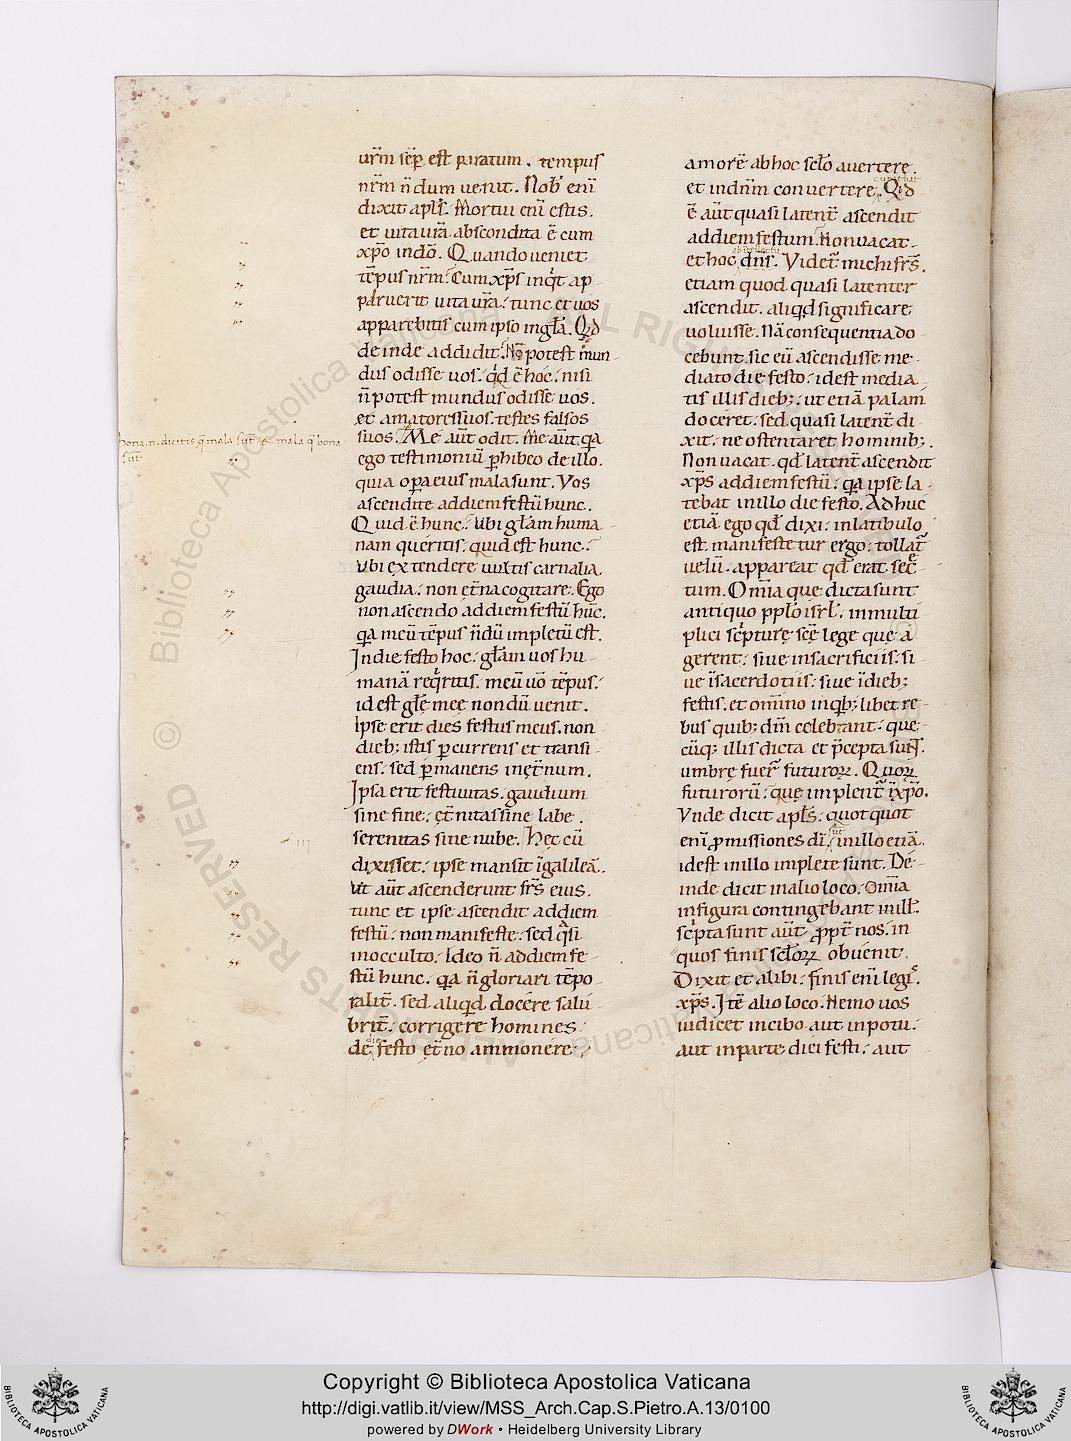 ur̅m se̅p est paratum . tempus
nr̅m n̅ dum uenit . Nob̅ eni̅
dixit apl̅s . Mortui eni̅ estis .
et uita ur̅a abscondita e̅ cum
xp̅o in do̅ . Quando ueniet
te̅pus nr̅m . Cum xp̅s inqt ap
paruerit uita ur̅a . tunc et uos
apparebitis cum ipso in gl̅a . Qd
de inde addidit . No̅ potest mun
dus odisse uos . qd e̅ hoc . nisi
n̅ potest mundus odisse uos .
et amatores suos . testes falsos
bona . n . dicitis q̅ mala su̅t & mala q̅ bona
su̅t
suos . Me au̅t odit . Me au̅t . qa
ego testimoniu̅ phibeo de illo .
quia opa eius mala sunt . Vos
ascendite ad diem festu̅ hunc .
Quid e̅ hunc . Ubi gl̅am huma
nam queritis . quid est hunc .
Ubi extendere uultis carnalia
gaudia . non et̅na cogitare . Ego
non ascendo ad diem festu̅ hu̅c .
qa meu̅ te̅pus n̅ du̅ impletu̅ est .
In die festo hoc . gl̅am uos hu
mana̅ reqritis . meu̅ uo̅ te̅pus .
id est gl̅e mee non du̅ uenit .
Ipse erit dies festus meus . non
dieb; istis pcurrens et transi
ens . sed pmanens in et̅num .
Ipsa erit festiuitas . gaudium
sine fine . et̅nitas sine labe .
serenitas sine nube . Hec cu̅
dixisset . ipse mansit i̅ galilea̅ .
Ut au̅t ascenderunt fr̅s eius .
tunc et ipse ascendit ad diem
festu̅ . non manifeste . sed qsi
in occulto . Ideo n̅ ad diem fe
stu̅ hunc . qa n̅ gloriari te̅po
ralit̅ . sed aliqd docere salu
brit̅ . corrigere homines
de die festo et̅no ammonere
amore̅ ab hoc scl̅o auertere .
et in dn̅m conuertere . Qid
e̅ au̅t quasi latent̅ ascendit
ad diem festum . Non uacat .
et hoc dn̅s . Videt̅ michi fr̅s .
etiam quod quasi latenter
ascendit . aliqd significare
uoluisse . Na̅ consequentia do
cebunt . sic eu̅ ascendisse me
diato die festo . id est media
tis illis dieb; . ut etia̅ palam
doceret . sed quasi latent̅ di
xit . ne ostentaret hominib; .
Non uacat . qd latent̅ ascendit
xp̅s ad diem festu̅ . qa ipse la
tebat in illo die festo . Adhuc
etia̅ ego qd dixi . in latibulo
est . manifestetur ergo . tollat̅
uelu̅ . appareat qd erat secre
tum . Om̅ia que dicta sunt
antiquo pplo isrl̅ . in multi
plici scpture sce̅ lege que a
gerent . siue in sacrificiis . si
ue i̅ sacerdotiis . siue i̅ dieb;
festis . et omnino inqb; libet re
bus quib; dm̅ celebrant . que
cu̅q; illis dicta et pcepta sunt .
umbre fuer̅ futuroꝝ . Quoꝝ
futuroru̅ . que implent̅ i̅ xp̅o .
Vnde dicit apl̅s . quotquot
eni̅ pmissiones di̅ sut in illo etia̅ .
id est in illo implete sunt . De
inde dicit in alio loco . Om̅ia
in figura contingebant illis .
scpta sunt au̅t ppt̅ nos . in
quos finis scl̅oꝝ obuenit .
Dixit et alibi . finis eni̅ legis
xp̅s . Ite̅ alio loco . Nemo uos
iudicet in cibo aut in potu .
aut in parte diei festi . aut
Copyright © Biblioteca Apostolica Vaticana
http://digi.vatlib.it/view/MSS_Arch.Cap.S.Pietro.A.13/0100
powered by DWork • Heidelberg University Library